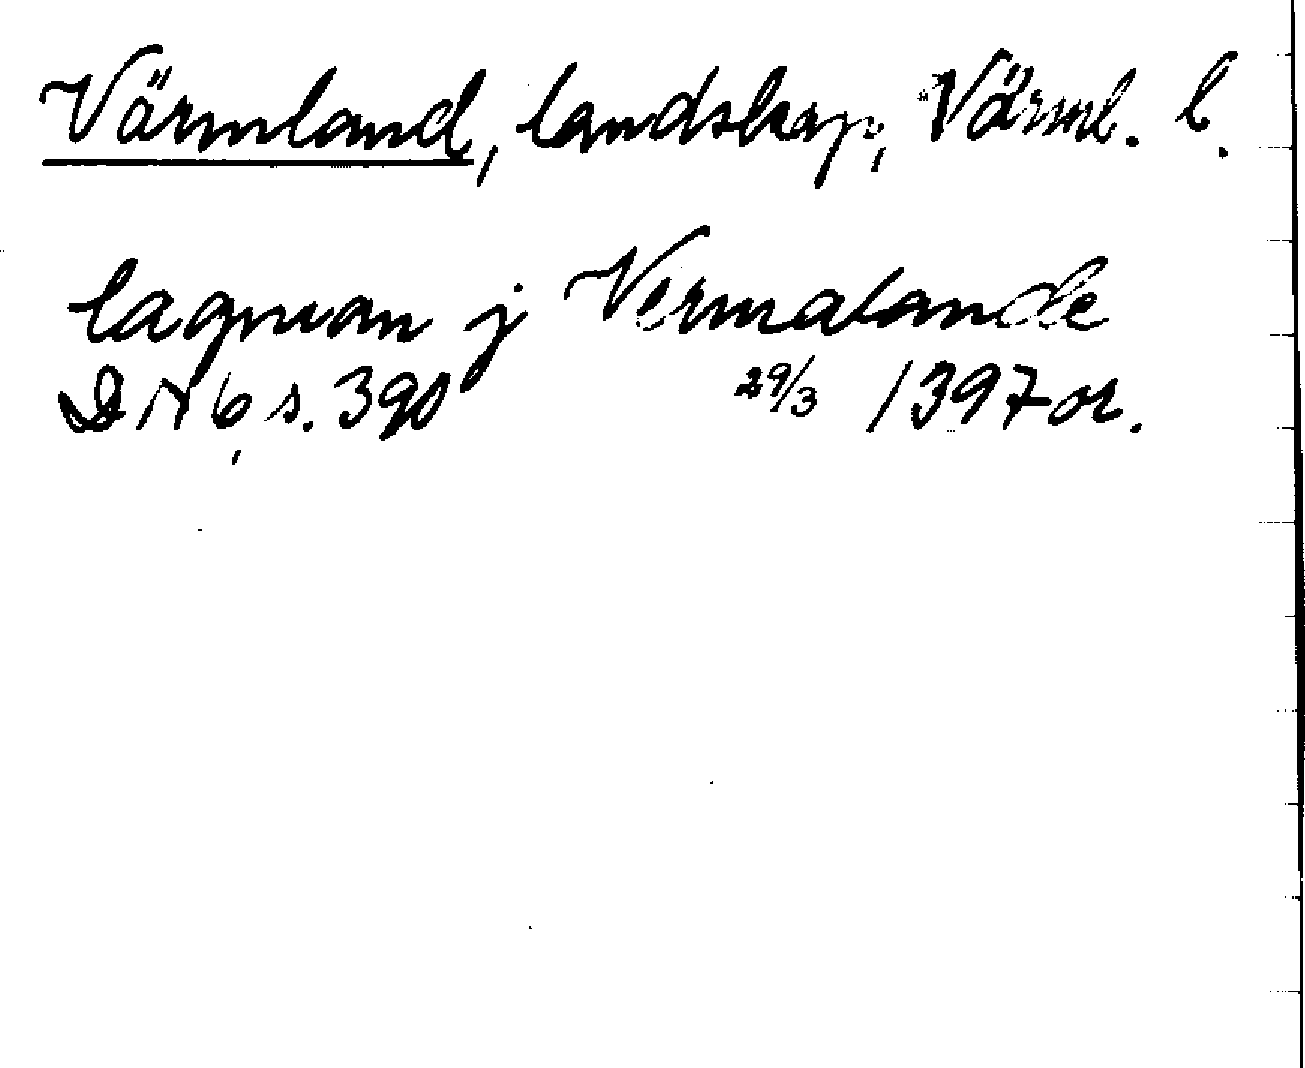 Värmland, landskap, Värml. l.
lagman j Vermalande
DN 6, s. 390 29/3 1397 or.